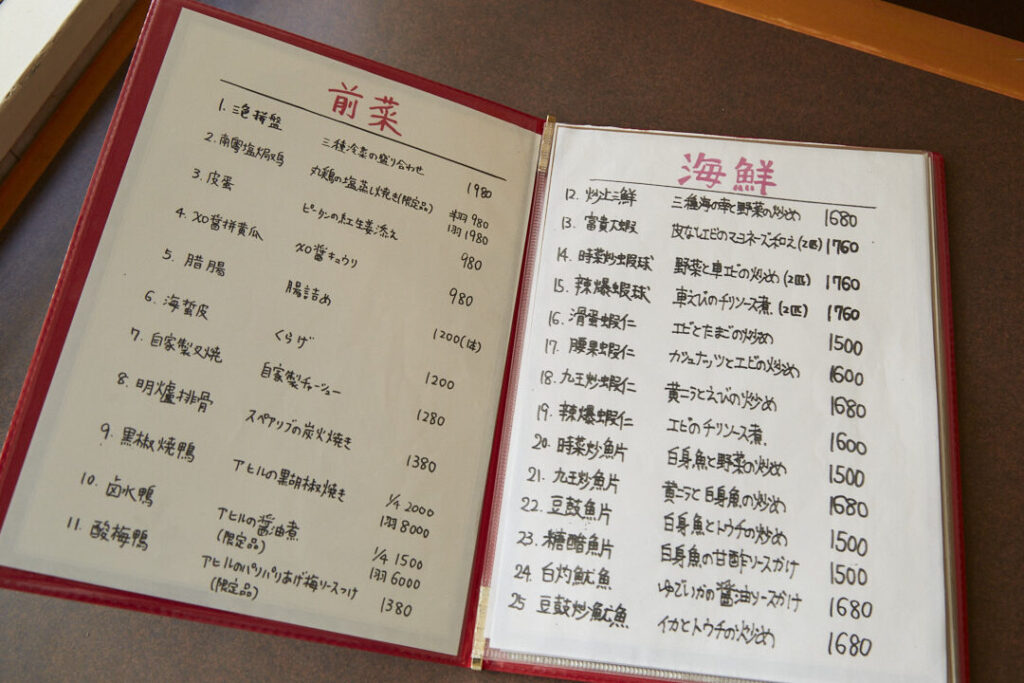 前菜
1. 三色拼盤 三種冷菜の盛り合わせ 1980
2. 南粵塩焗鶏 丸鶏の塩蒸し焼き(限定品) 半羽 980
1羽 1980
3. 皮蛋 ピータンの紅生姜添え 980
4. XO醤拼黄瓜 XO醤キュウリ 980
5. 腊腸 腸詰め 1200(1本)
6. 海蜇皮 くらげ 1200
7. 自家製叉焼 自家製チャーシュー 1280
8. 明爐排骨 スペアリブの炭火焼き 1380
9. 黒椒焼鴨 アヒルの黒胡椒焼き 1/4 2000
1羽 8000
10. 卤水鴨 アヒルの醤油煮 1/4 1500
(限定品) 1羽 6000
11. 酸梅鴨 アヒルのパリパリあげ梅ソースつけ 1380
(限定品)
海鮮
12. 炒三鮮 三種海の幸と野菜の炒め 1680
13. 富貴大蝦 皮なしエビのマヨネーズ和え(2匹) 1760
14. 時菜炒蝦球 野菜と車エビの炒め(2匹) 1760
15. 辣爆蝦球 車えびのチリソース煮(2匹) 1760
16. 滑蛋蝦仁 エビとたまごの炒め 1500
17. 腰果蝦仁 カシュナッツとエビの炒め 1600
18. 九王炒蝦仁 黄ニラとえびの炒め 1680
19. 辣爆蝦仁 エビのチリソース煮 1600
20. 時菜炒魚片 白身魚と野菜の炒め 1500
21. 九王炒魚片 黄ニラと白身魚の炒め 1680
22. 豆鼓魚片 白身魚とトウチの炒め 1500
23. 糖醋魚片 白身魚の甘酢ソースかけ 1500
24. 白灼魷魚 ゆでいかの醤油ソースがけ 1680
25 豆鼓炒魷魚 イカとトウチの炒め 1680